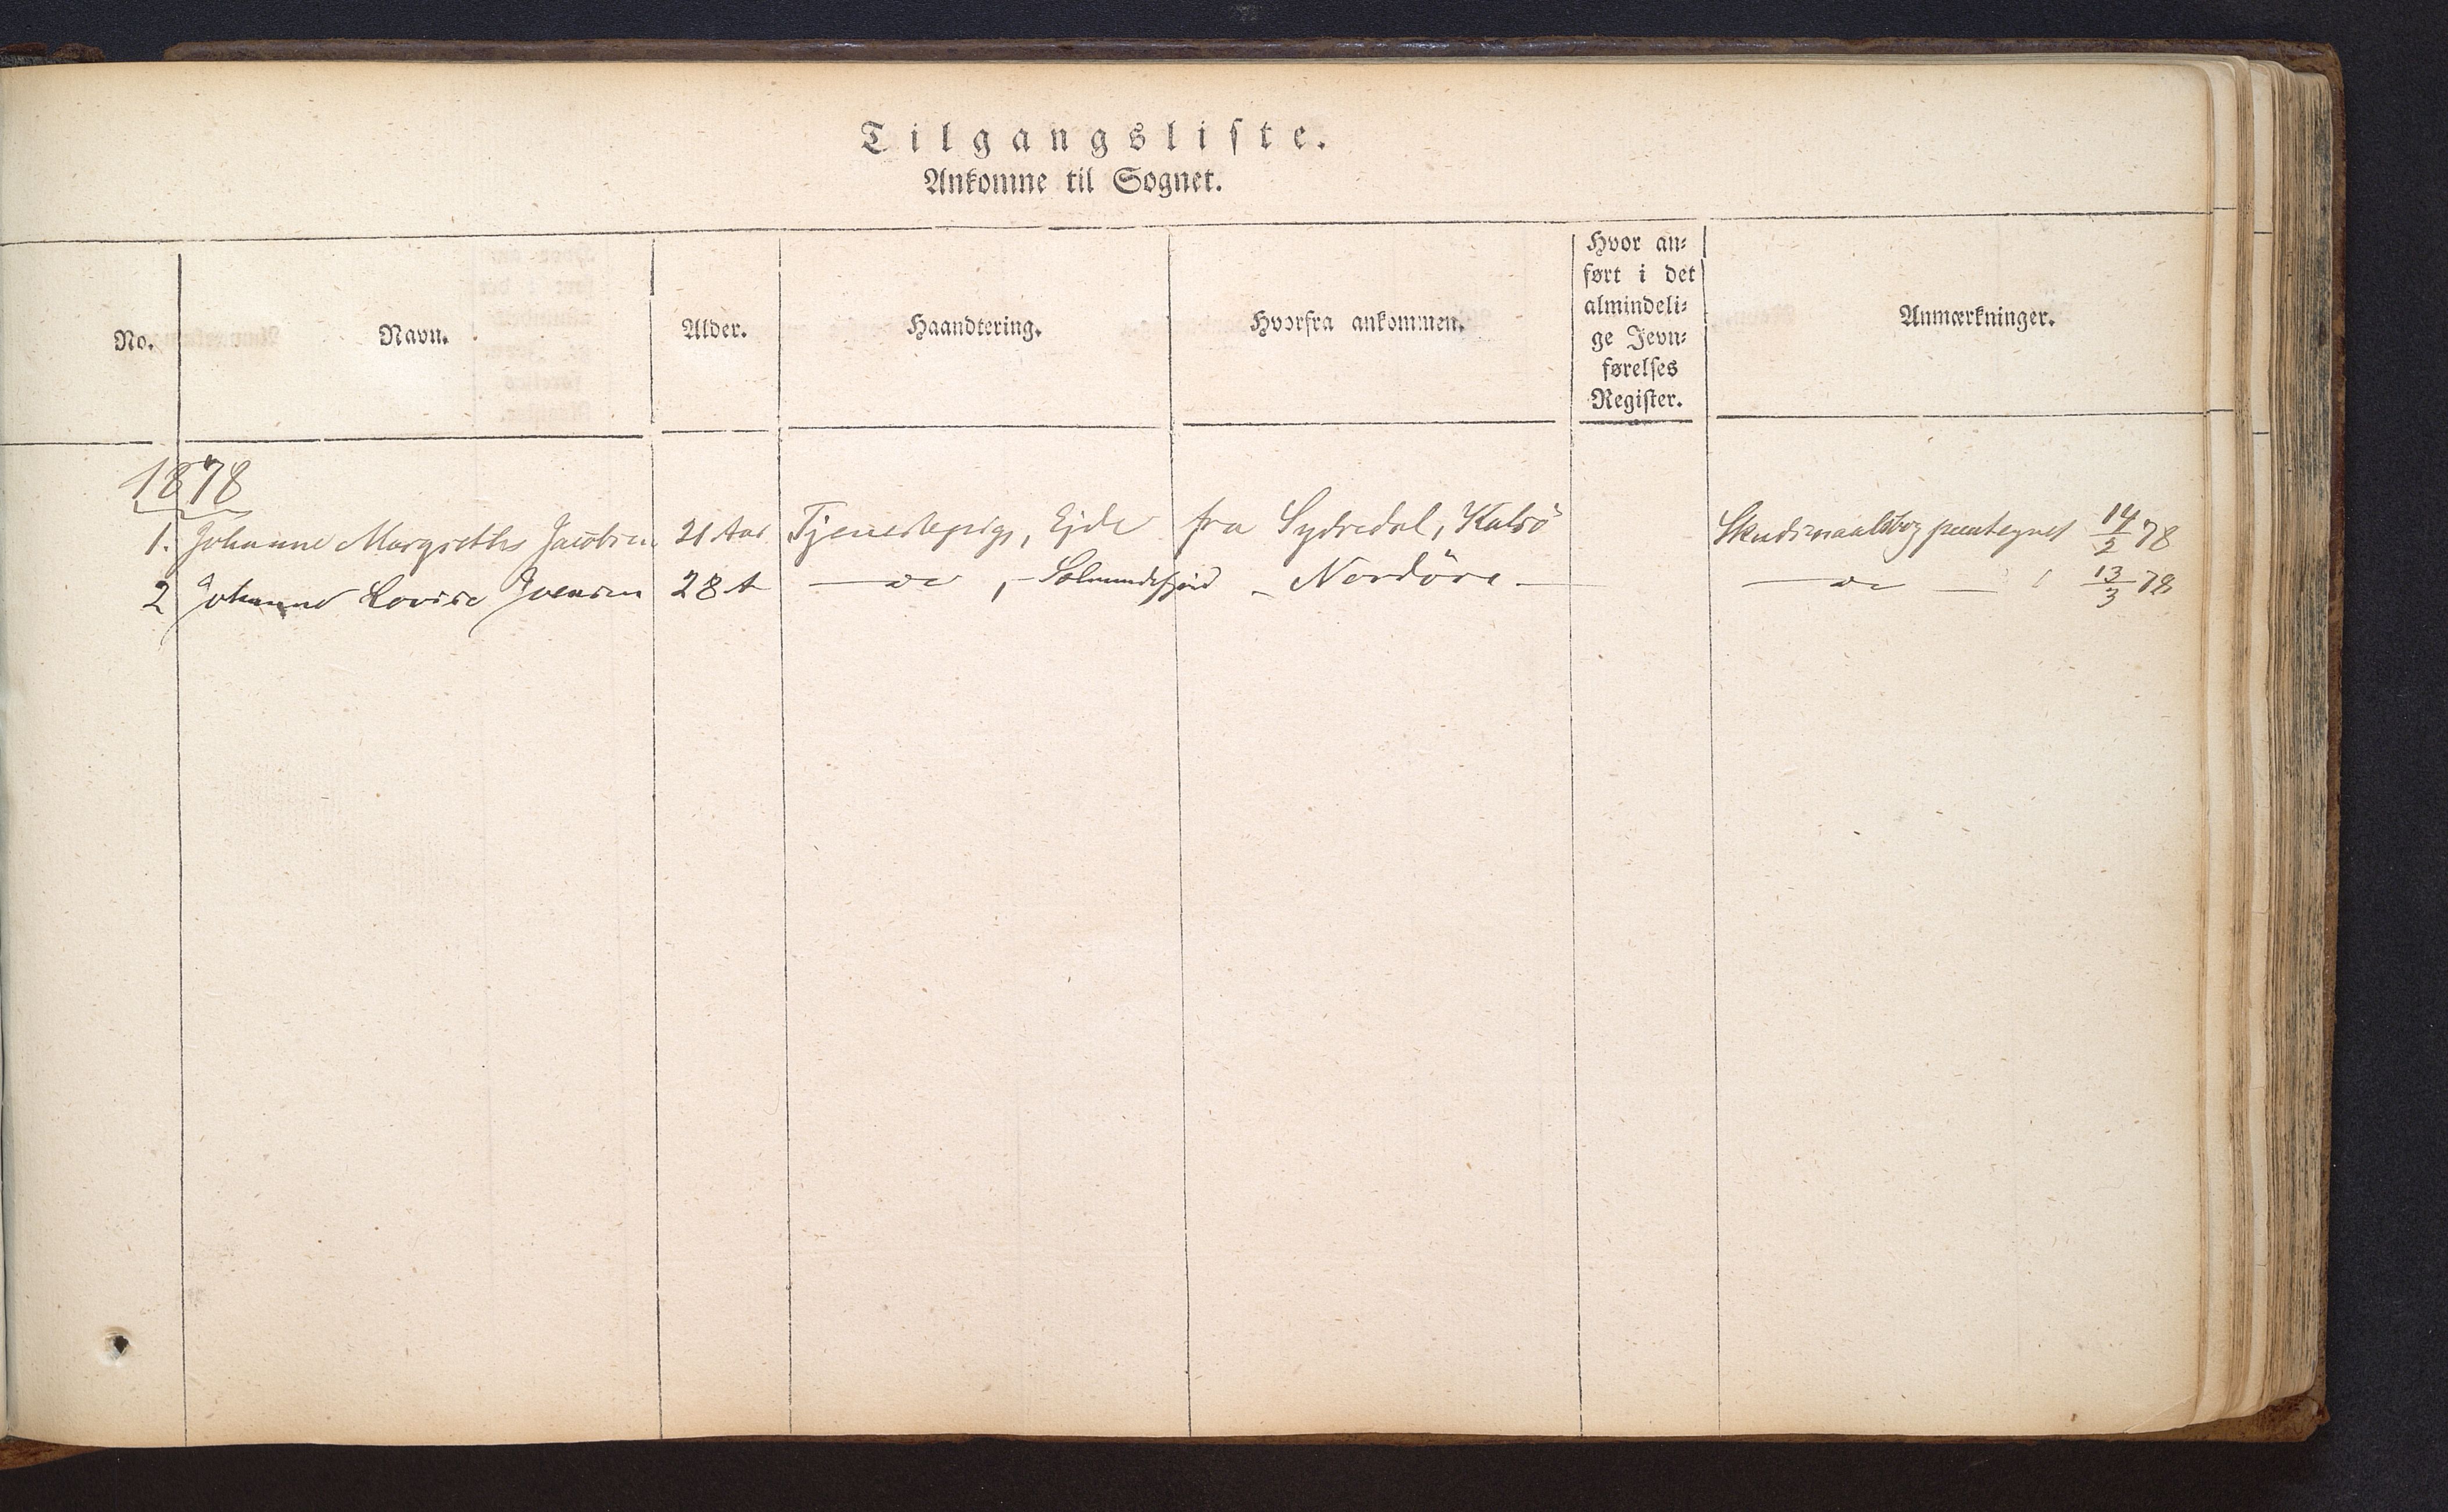 Tilgangsliste.
Ankomne til Sognet.
No. Navn. Alder. Haandtering. Hvorfra ankommen. Hvor an- ført i det almindeli- ge Jevn- førelses Register. Anmærkninger.
1878
1. Johanne Margrethe Jacobsen 21 Aar Tjenestepige, Ejde fra Sydredal, Kalsö Skudsmaalsbog paategnet 14/2 78
2 Johanne Lovise Joensen 28 A — do , - Solmundefjord - Nordöre — — do — 13/3 78